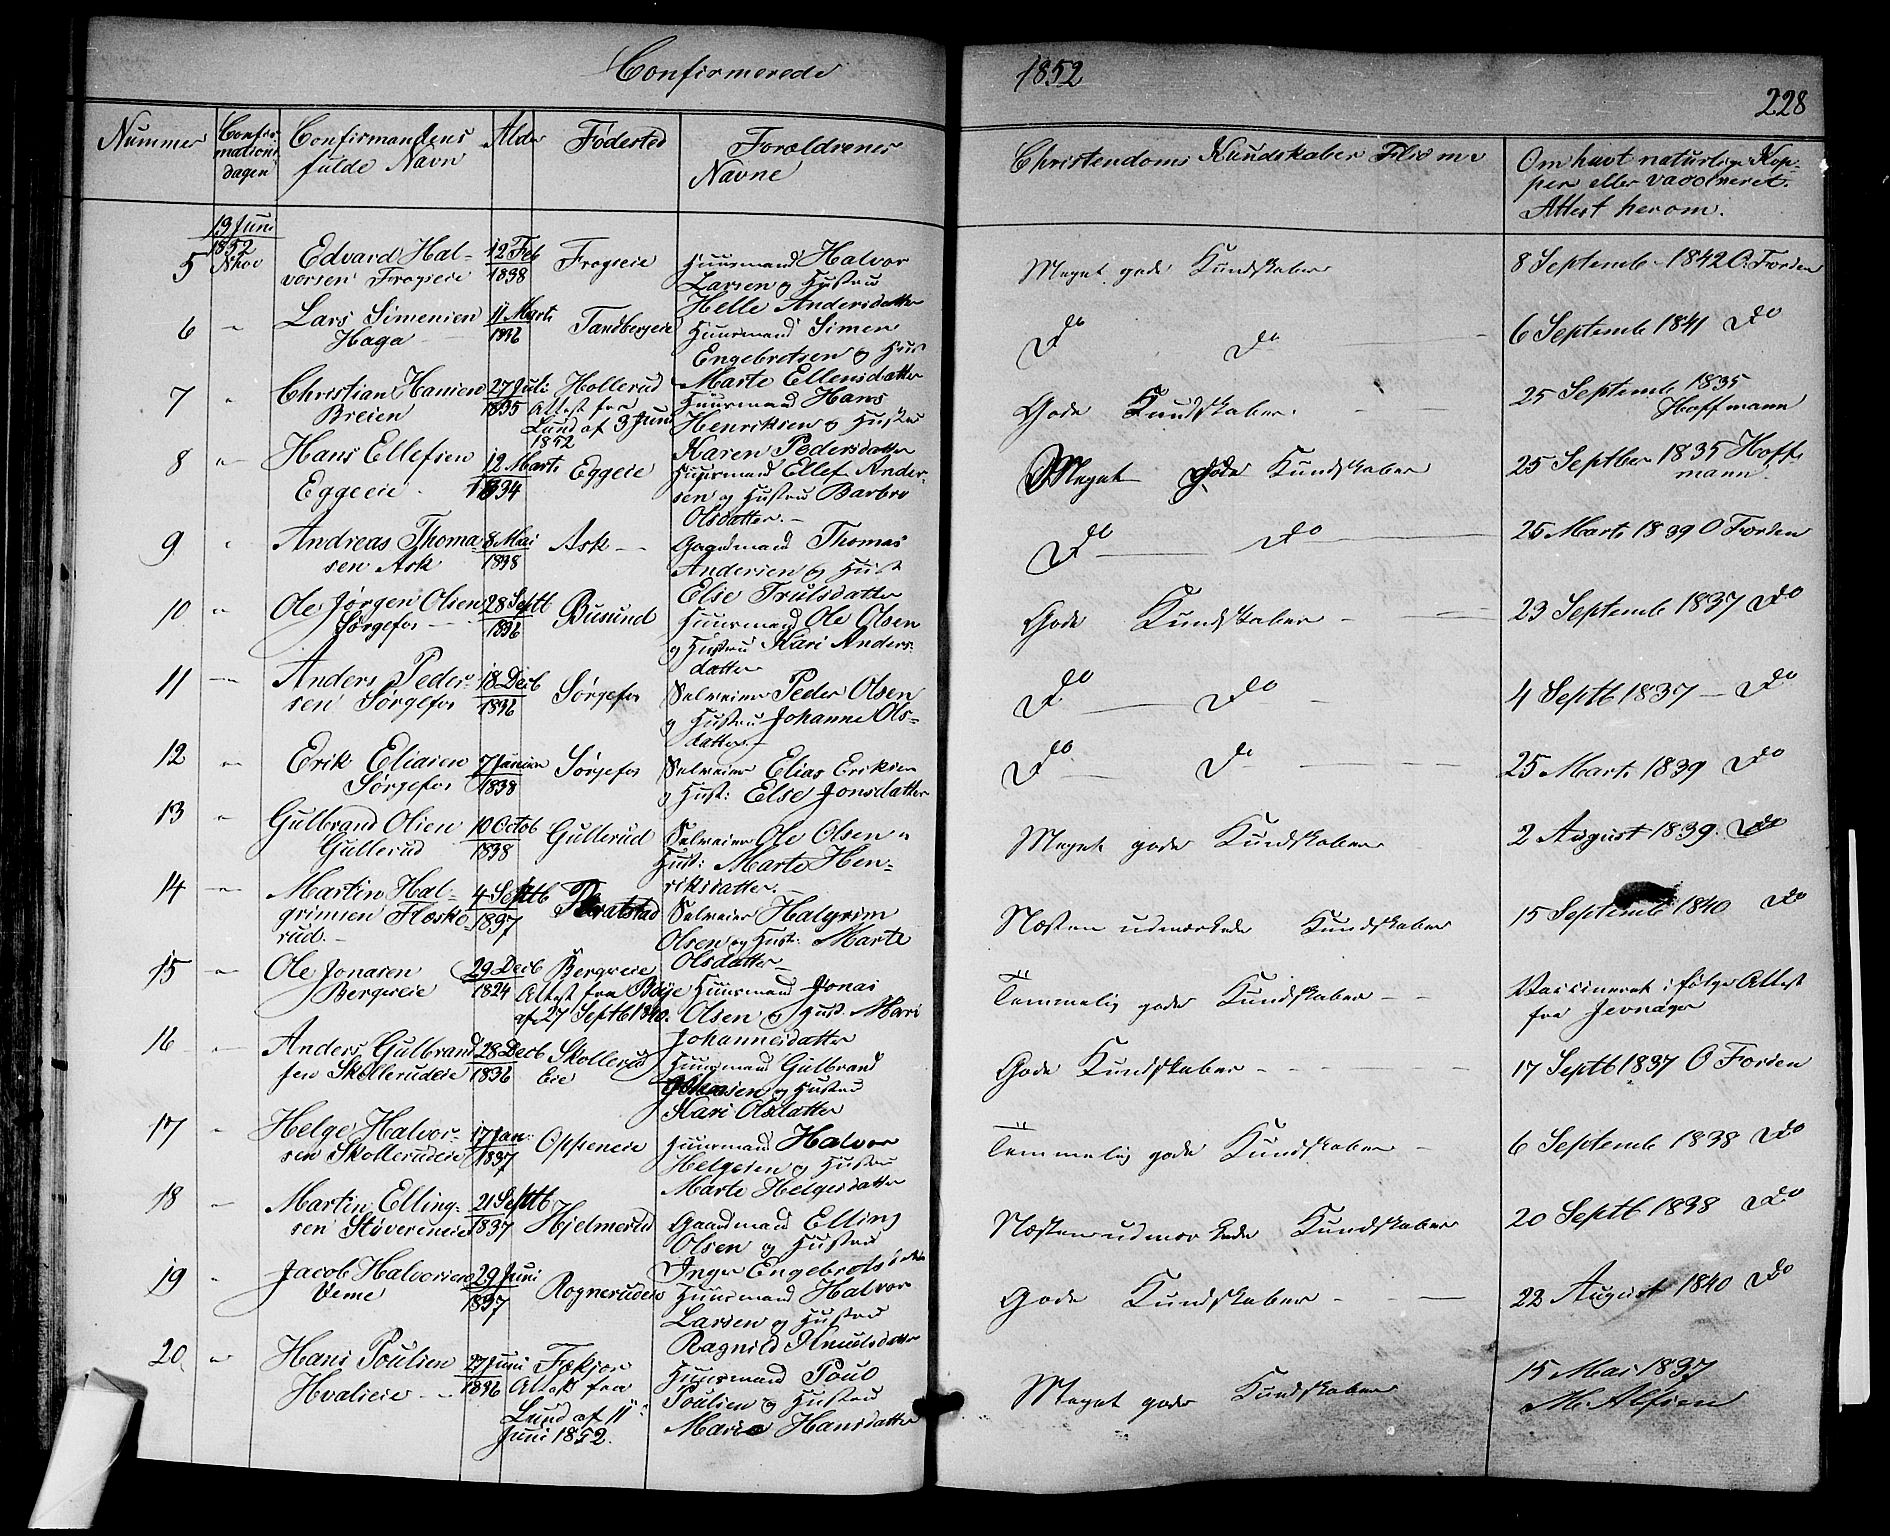 Confirmerede
1852
228
Nummer
Confir-
mations
dagen
Confirmandens
fulde Navn
Alder
Fødested
Forældrenes
Navne
Christendoms Kundskaber
Om havt naturlige Kop-
per eller vaccineret.
Attest herom.
13 Juni
1852
5
Edvard Hal-
vorsen Frogeie
12 Feb
1838
Frogeie
Huusmand Halvor
Larsen og Hustru
Helle Andersdatter
Meget gode Kundskaber
8 Septemb. 1842 O. Forden
6 "
Lars Simensen
Haga
11 Marts
1836
Tandbergeie
Huusmand Simen
Engebretsen og Hus
Marte Ellensdatter
Do Do
6 Septemb 1841 Do
7 "
Christian Hansen
Breien
27 Juli
1835
Hollerud
Attest fra
Lund af 3 Juni
1852
Huusmand Hans
Henriksen og Hustru
Karen Pedersdatter
Gode Kundskaber.
25 Septemb 1835
Hoffmann
8 "
Hans Ellefsen
Eggeeie
12 Marts
1834
Eggeie
Huusmand Ellef Ander-
sen og Hustru Barbro
Olsdatter.
Meget gode Kundskaber
25 Septber 1835 Hoff-
mann.
9 "
Andreas Thoma
sen Ask
8 Mai
1838
Ask
Gaardmand Thomas
Andersen og Hust
Else Trulsdatter
Do Do
25 Marts 1839 O Forden
10 "
Ole Jørgen Olsen
Sørgefos
28 Septb
1836
Busund
Huusmand Ole Olsen
og Hustru Kari Anders-
datter
Gode Kundskaber
23 Septemb 1837 Do
11 "
Anders Peder-
sen Sørgefos
18 Decb
1836
Sørgefos
Selveier Peder Olsen
og Hustru Johanne Ols-
datter
Do Do
4 Septb 1837 Do
12 "
Erik Eliasen
Sørgefos
7 Januar
1838
Sørgefos
Selveier Elias Eriksen
og Hust: Else Jonsdatter
Do Do
25 Marts 1839 Do
13 "
Gulbrand Olsen
Gullerud
10 Octob
1838
Gullerud
Selveier Ole Olsen "
Hust: Marte Hen-
riksdatter.
Meget gode Kundskaber
2 August 1839. Do
14 "
Martin Hal-
grimsen Flaske-
rud.
4 Septb
1837
Selveier Halgrim
Olsen og Hust: Marte
Olsdatter
Næsten udmærkede Kundskaber
15 Septemb 1840 Do
15 "
Ole Jonasen
Bergseie
29 Decb
1824
Bergseie
Attest fra
af 27 Septb 1840.
Huusmand Jonas
Olsen og Hust. Mari
Johannesdatter
Temmelig gode Kundskaber
Vaccineret i følge Attest
fra Jevnager
16
Anders Gulbrand
sen Skollerudeie
28 Decb
1836
Skollerud
eie
Huusmand Gulbrand
og Hustru
Kari Olsdatter
Gode Kundskaber
17 Septb 1837 O Forden
17 "
Helge Halvor-
sen Skollerudeie
17 Jan:
1837
Oppeneie
Huusmand Halvor
Helgesen og Hustru
Marte Helgesdatter
Temmelig gode Kundskaber
6 Septemb 1838 Do
18
Martin Elling-
sen Støvereneie
21 Septb
1837
Hjelmerud
Gaardmand Elling
Olsen og Hustru
Inger Engebretsdatter
Næsten udmærkede Kundskaber
20 Septb 1838 Do
19 "
Jacob Halvorsen
Veme
29 Juni
1837
Rognerudeie
Huusmand Halvor
Larsen og Hustru
Ragnild Knudsdatter
Gode Kundskaber
22 August 1840 Do
20 "
Hans Poulsen
Hvalseie
27 Juni
1836
Fækjor
Attest fra
Lund af 11
Juni 1852.
Huusmand Poul
Poulsen og Hustru
Marie Hansdatter
Meget gode Kundskaber
15 Mai 1837
M. Alfsen